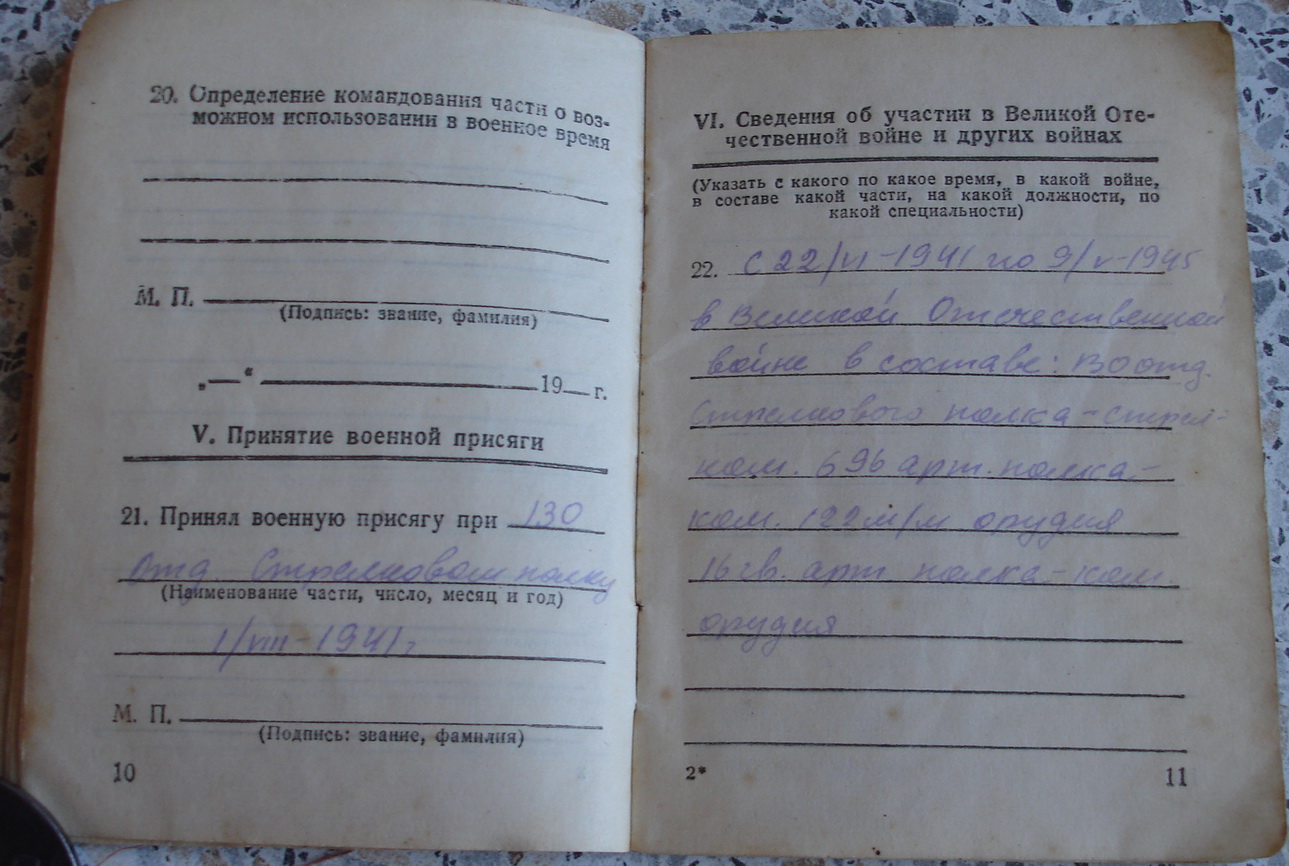 20. Определение командования части о воз-
можном использовании в военное время
М. П.
(Подпись: звание, фамилия)
„—“ 19— г.
V. Принятие военной присяги
21. Принял военную присягу при 130
отд. Стрелковом полку
(Наименование части, число, месяц и год)
1/VIII-1941 г.
М. П.
(Подпись: звание, фамилия)
10
VI. Сведения об участии в Великой Оте-
чественной войне и других войнах
(Указать с какого по какое время, в какой войне,
в составе какой части, на какой должности, по
какой специальности)
22. С 22/VI-1941 по 9/V-1945
в Великой Отечественной
войне в составе: 130 отд.
Стрелкового полка - стрел-
ком. 696 арт. полка -
ком. 122 м/м орудия
16 гв. арт полка - ком.
орудия
2*
11